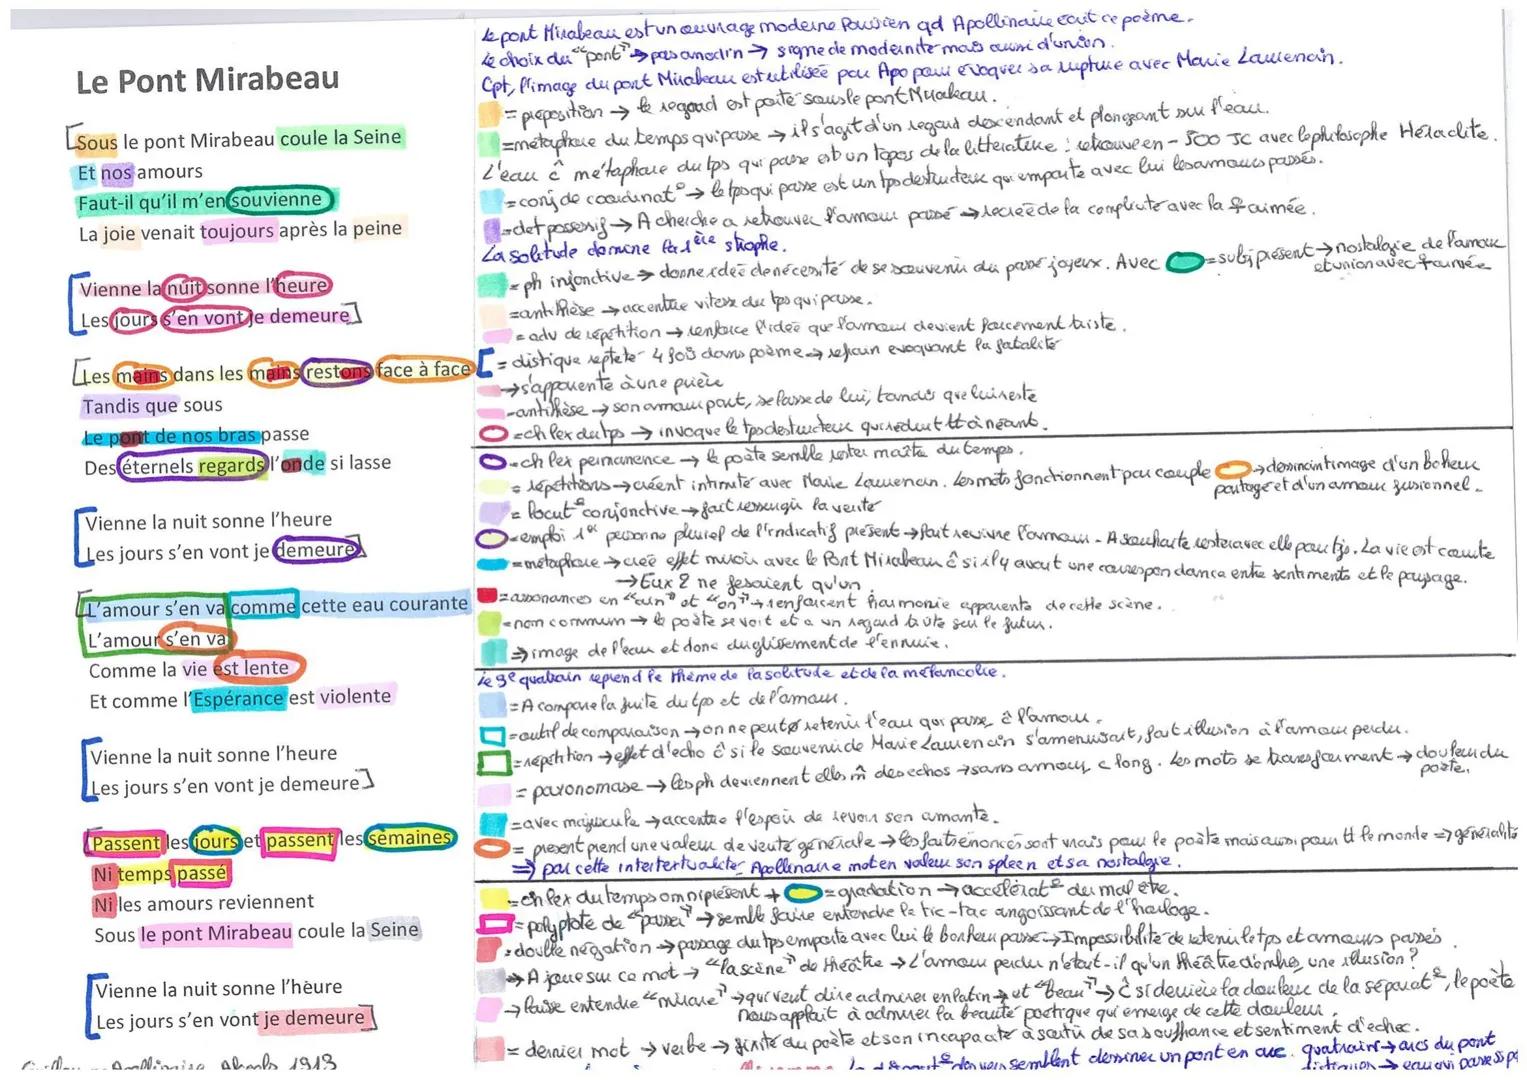 Le Pont Mirabeau
Sous le pont Mirabeau coule la Seine
Et nos amours
Faut-il qu'il m'en souvienne
La joie venait toujours après la peine
Vienne la nuit sonne l'heure
Les jours s'en vont je demeure
Les mains dans les mains restons face à face
Tandis que sous
Le pont de nos bras passe
Des éternels regards l'onde si lasse
Vienne la nuit sonne l'heure
Les jours s'en vont je demeure
L'amour s'en va comme cette eau courante
L'amour s'en va
Comme la vie est lente
Et comme l'Espérance est violente
Vienne la nuit sonne l'heure
Les jours s'en vont je demeure
Passent les jours et passent les semaines
Ni temps passé
Ni les amours reviennent
Sous le pont Mirabeau coule la Seine
Vienne la nuit sonne l'heure
Les jours s'en vont je demeure
Apollinaire Alcools 1913
le pont Mirabeau est un ouvrage moderne Parisien qd Apollinaire écrit ce poème.
Le choix du "pont" → pas anodin → signe de modernité mais aussi d'union.
Cpt, l'image du pont Mirabeau est utilisée par Apo pour évoquer sa rupture avec Marie Laurencin.
= préposition → le regard est porté sous le pont Mirabeau.
= métaphore du temps qui passe → il s'agit d'un regard descendant et plongeant sur l'eau.
L'eau ĉ métaphore du tps qui passe est un topos de la littérature : retrouve en - 500 JC avec le philosophe Héraclite.
= conj de coordinat° → le tps qui passe est un tps destructeur qui emporte avec lui les amours passés.
= det possessif → A cherche a retrouver l'amour passé → recrée de la complicité avec la ♀ aimée.
La solitude domine la 1ère strophe.
= ph injonctive → donne idée de nécessité de se souvenir du passé joyeux. Avec = subj présent → nostalgie de l'amour et union avec ♀ aimée
= antithèse → accentue vitesse du tps qui passe.
= adv de répétition → renforce l'idée que l'amour devient forcément triste.
= distique répété 4 fois dans poème → refrain évoquant la fatalité
→ s'apparente à une prière
= antithèse → son amour part, se lasse de lui, tandis que lui reste
= ch lex du tps → invoque le tps destructeur qui réduit tt à néant.
= ch lex permanence → le poète semble rester maître du temps.
= répétitions → créent intimité avec Marie Laurencin. Les mots fonctionnent par couple → dessinent image d'un bonheur partagé et d'un amour fusionnel.
= locut° conjonctive → fait ressurgir la vérité
= emploi 1ère personne pluriel de l'indicatif présent → fait revivre l'amour - A souhaite rester avec elle pour tjs. La vie est courte
= métaphore → crée effet miroir avec le Pont Mirabeau ĉ si il y avait une correspondance entre sentiments et le paysage.
→ Eux 2 ne fesaient qu'un.
= assonances en "ain" et "on" → renforcent harmonie apparente de cette scène.
= nom commun → le poète se voit et a un regard triste sur le futur.
⇒ image de l'eau et donc du glissement de l'ennuie.
Le 3e quatrain reprend le thème de la solitude et de la mélancolie.
= A compare la fuite du tps et de l'amour.
= outil de comparaison → on ne peut ∅ retenir l'eau qui passe ĉ l'amour.
= répétition → effet d'écho ĉ si le souvenir de Marie Laurencin s'amenuisait, fait illusion à l'amour perdu.
= paronomase → les ph deviennent elles m̂ des echos → sans amour, c long. Les mots se transforment → douleur du poète.
= avec majuscule → accentue l'espoir de revoir son amante.
= présent prend une valeur de vérité générale → les faits énoncés sont vrais pour le poète mais aussi pour tt le monde ⇒ généralité
⇒ par cette intertextualité Apollinaire met en valeur son spleen et sa nostalgie.
= ch lex du temps omniprésent + = gradation → accélérat° du mal être.
= polyptote de "passer" → semble faire entendre le tic-tac angoissant de l'horloge.
= double négation → passage du tps emporte avec lui le bonheur passé → Impossibilité de retenir le tps et amours passés
→ A joue sur ce mot → "la scène" de théâtre → L'amour perdu n'était-il qu'un théâtre d'ombre, une illusion ?
→ laisse entendre "mirare" → qui veut dire admirer en latin → et "beau" → ĉ si derrière la douleur de la séparat°, le poète nous appelait à admirer la beauté poétique qui émerge de cette douleur.
= dernier mot → verbe → finité du poète et son incapacité à sortir de sa souffrance et sentiment d'échec.
des vers semblent dessiner un pont en arc. quatrains → arcs du pont
distiques → eau qui passe